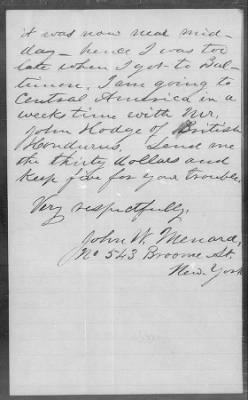 it was now near mid-
day - hence I was too
late when I got to Bal-
timore. I am going to
Central America in a
weeks time with Mr.
John Hodge of British
Hondurus. Send me
the thirty dollars and
keep five for your trouble.
Very respectfully,
John W. Menard,
No 543 Broome St.
New-York